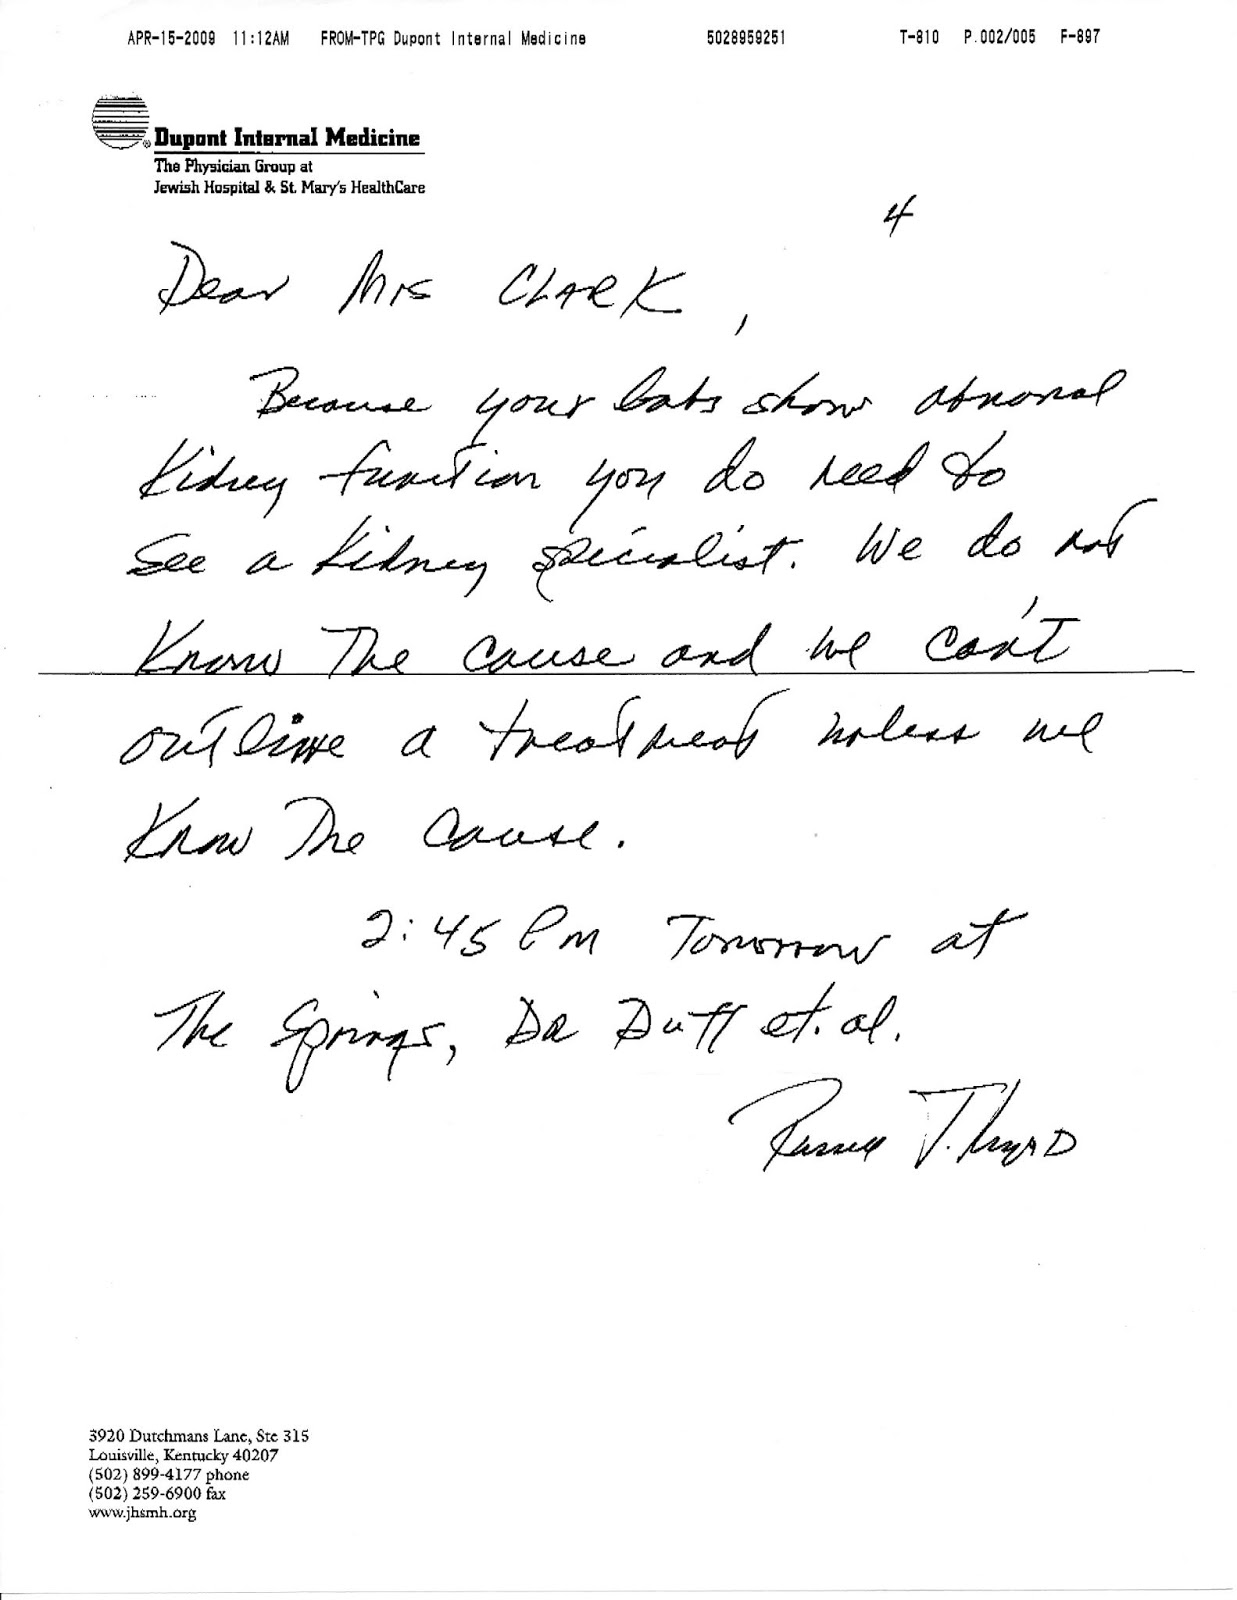 APR-15-2009 11:12AM FROM-TPG Dupont Internal Medicine 5028959251 T-810 P.002/005 F-897
® Dupont Internal Medicine
The Physician Group at
Jewish Hospital & St. Mary's HealthCare
4
Dear Mrs CLARK,
Because your labs show abnormal
Kidney function you do need to
See a Kidney specialist. We do not
Know The cause and we can't
outline a treatment unless we
Know The cause.
2:45 Pm Tomorrow at
The Springs, DR Duff et. al.
Russell T.
3920 Dutchmans Lane, Ste 315
Louisville, Kentucky 40207
(502) 899-4177 phone
(502) 259-6900 fax
www.jhsmh.org